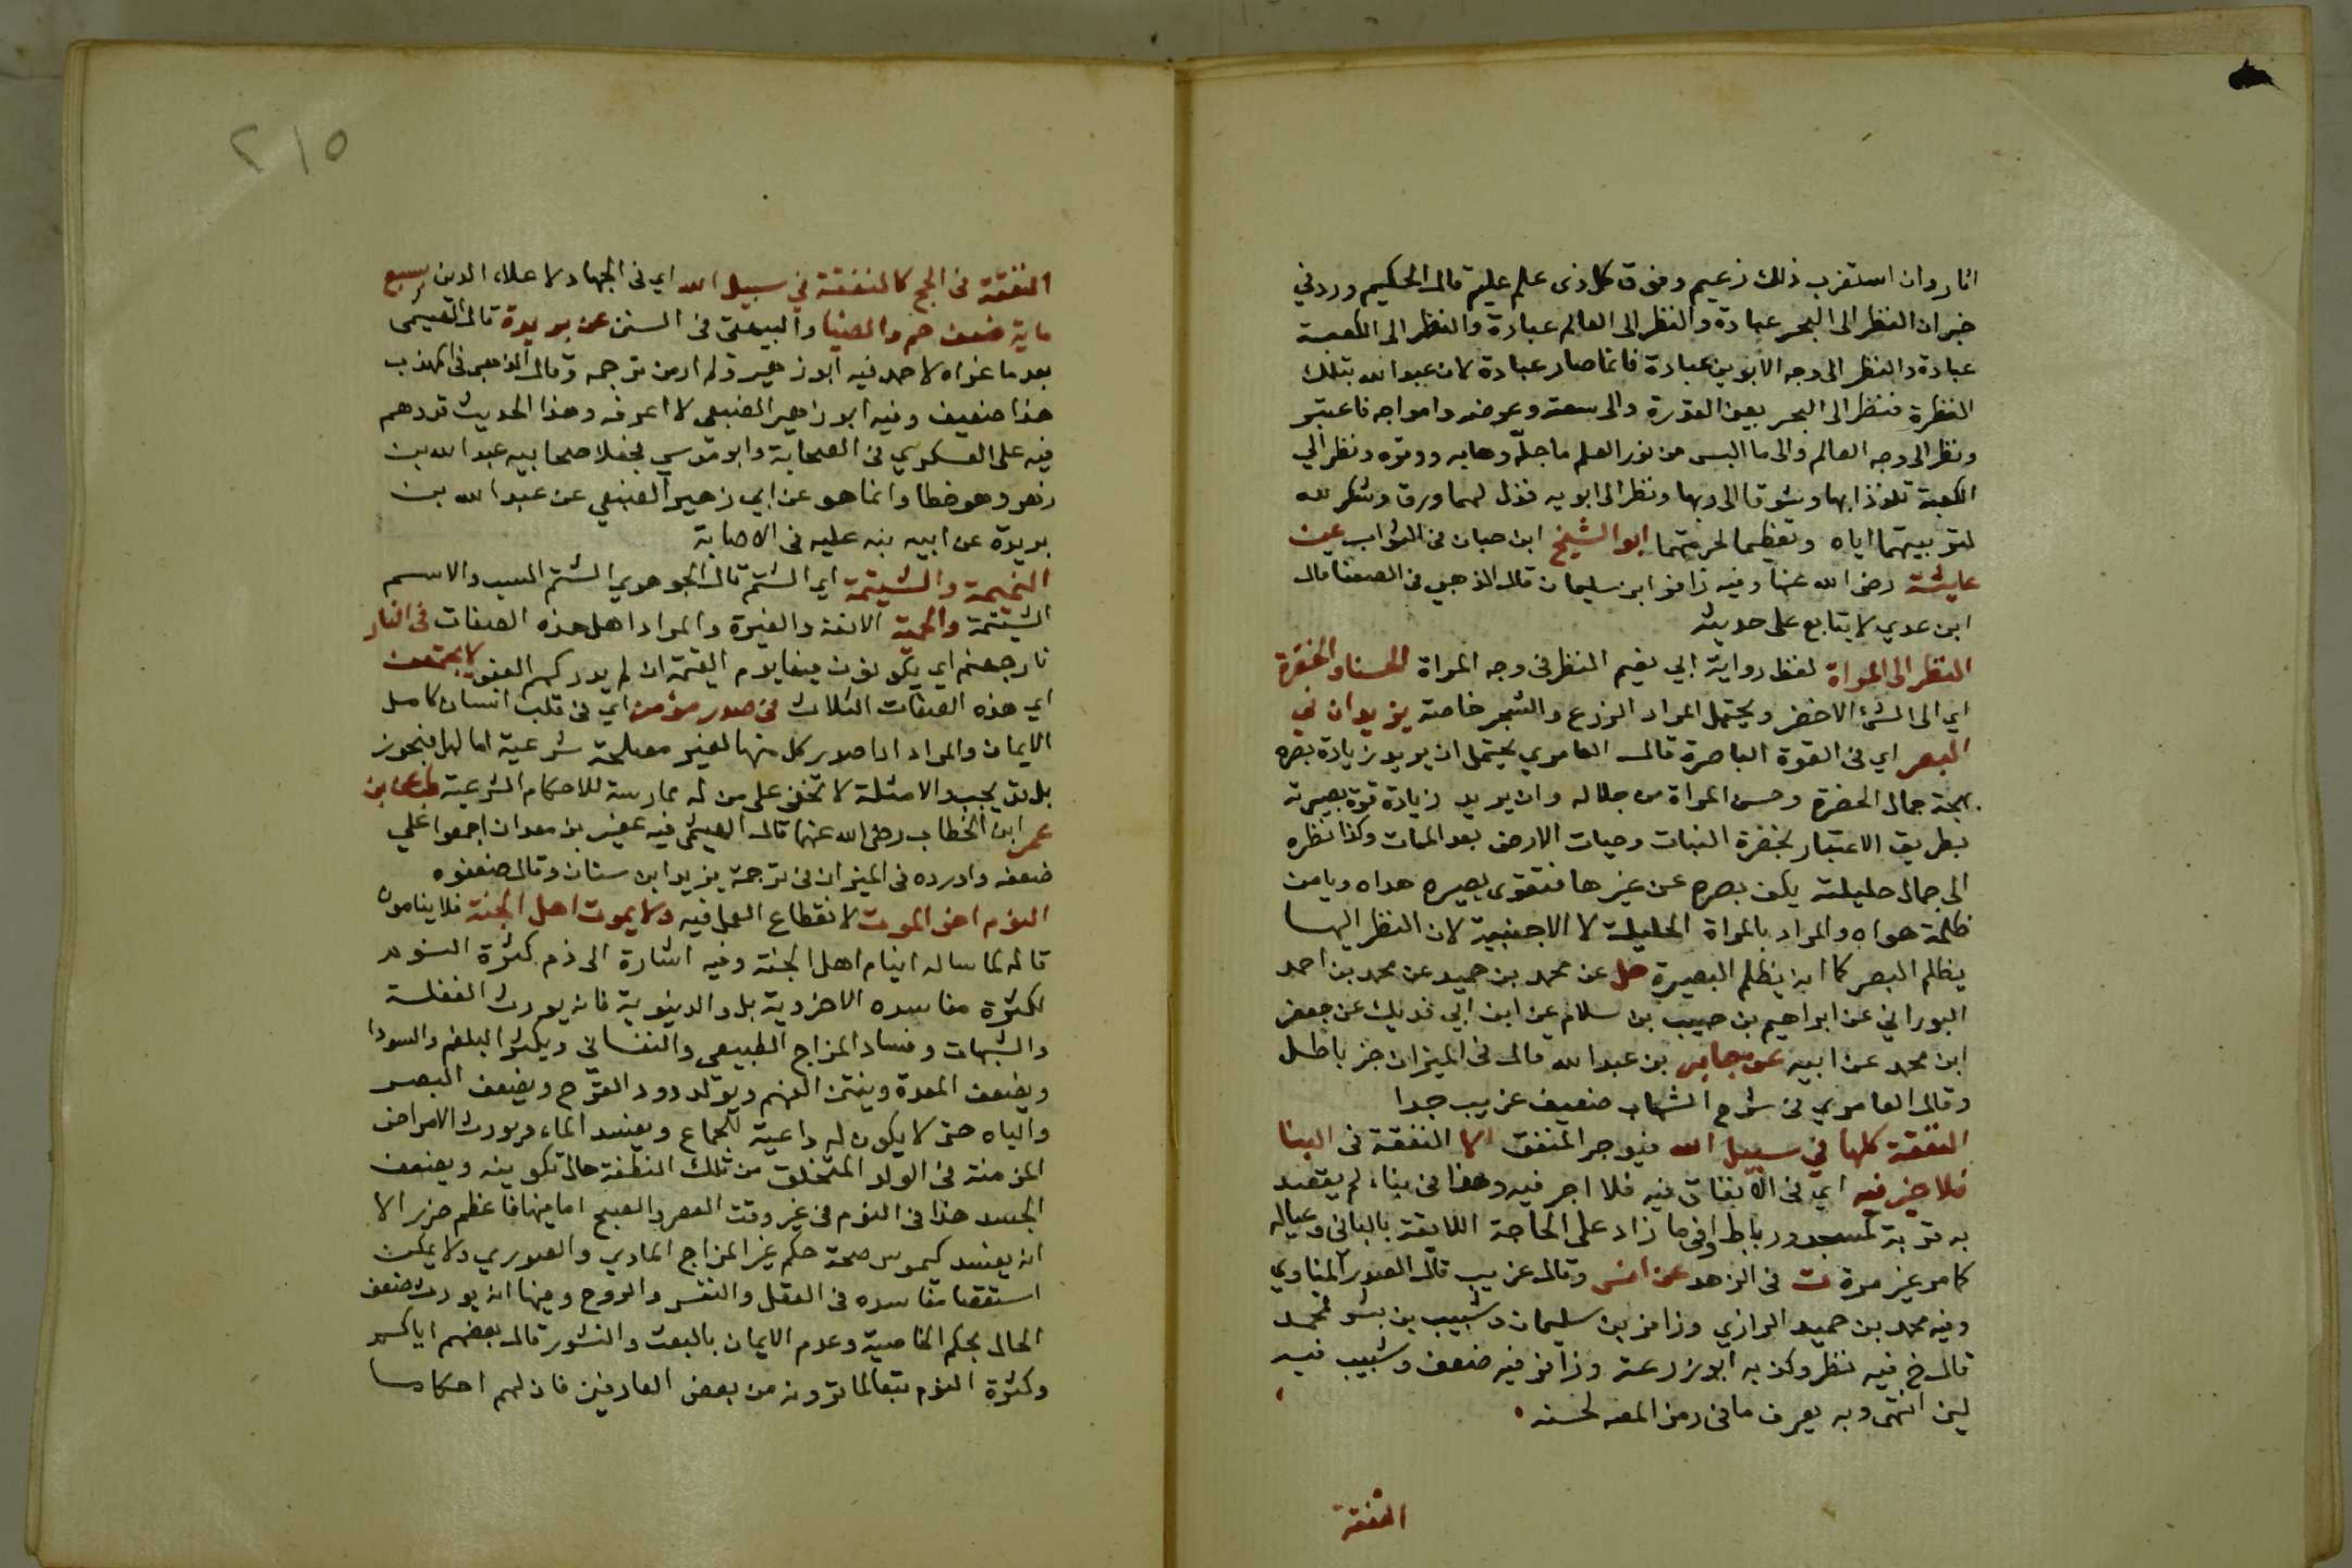 اثار وان استغرب ذلك زعيم وفوق كل ذى علم عليم قال الحكيم ورد في
خبر ان النظر الى البحر عبادة والنظر الى العالم عبادة والنظر الى الكعبة
عبادة والنظر الى وجه الابوين عبادة فانما صار عبادة لان عبد الله بتلك
النظرة فنظر الى البحر بعين القدرة والى سعته وعرضه وامواجه فاعتبر
ونظر الى وجه العالم والى ما البس من نور العلم فاجله وهابه ووقره ونظر الي
الكعبة تلذذا بها وشوقا الى ربها ونظر الى ابويه فذل لهما ورق وشكر لله
لتربيتهما اياه وتعظيما لحرمتهما ابو الشيخ ابن حبان فى الثواب عن
عايشة رضى الله عنها وفيه زافر ابن سليمان قال الذهبي فى الضعفا قال
ابن عدي لا يتابع على حديثه
النظر الى المراة لفظ رواية ابي نعيم النظر فى وجه المراة الحسنا والخضرة
اي الى الشئ الاخضر ويحتمل المراد الزرع والشجر خاصة يزيدان في
البصر اي فى القوة الباصرة قال العامري يحتمل ان يريد زيادة بصره
بهجة جمال الخضرة وحسن المراة من جلاله وان يريد زيادة قوة بصيرته
بطريق الاعتبار بخضرة النبات وحيات الارض بعد الممات وكذا نظره
الى جمال حليلته يكف بصره عن غيرها فتقوى بصيره هداه ويامن
ظلمة هواه والمراد بالمراة الحليلة لا الاجنبية لان النظر اليها
يظلم البصر كما انه يظلم البصيرة حل عن محمد بن حميد عن محمد بن احمد
البوراني عن ابراهيم بن حبيب بن سلام عن ابن ابي فديك عن جعفر
ابن محمد عن ابيه عن جابر بن عبد الله قال فى الميزان خبر باطل
وقال العامري فى شرح الشهاب ضعيف غريب جدا
النفقة كلها في سبيل الله فيوجر المنفق الا النفقة فى البنا
فلا خير فيه اي فى الانفاق فيه فلا اجر فيه وهذا فى بناء لم يقصد
به قربة كمسجد ورباط او فى ما زاد على الحاجة اللايقة بالبانى وعياله
كما مر غير مرة ت فى الزهد عن انس وقال غريب قال الصدر المناوي
وفيه محمد بن حميد الرازي وزافر بن سليمان وشبيب بن بشر فمحمد
قال خ فيه نظر وكذبه ابو زرعة وزافر فيه ضعف وشبيب فيه
لين انتهى وبه يعرف ما فى رمز المصه لحسنه
النفقة
٢١٥
النفقة فى الحج كالنفقة في سبيل الله اي فى الجهاد لاعلاء الدين بسبع
ماية ضعف حم والضيا والبيهقى فى السنن عن بريدة قال الهيثمي
بعد ما عزاه لاحمد فيه ابو زهير ولم ار من ترجمه وقال الذهبى فى المهذب
هذا ضعيف وفيه ابو زهير الضبعي لا اعرفه وهذا الحديث قد وهم
فيه على العسكري فى الصحابة وابو موسي فجعلا صحابيه عبد الله بن
زهير وهو خطا وانما هو عن ابي زهير الضبعي عن عبد الله بن
بريدة عن ابيه نبه عليه فى الاصابة
النميمة والشيتمة اي الشتم قال الجوهري الشتم السب والاسم
الشيتمة والحمية الانفة والغيرة والمراد اهل هذه الصفات فى النار
نار جهنم اي يكونون فيها يوم القيمة ان لم يدركهم العفو لا يجتمعن
اي هذه الصفات الثلاث فى صدر مومن اي فى قلب انسان كامل
الايمان والمراد اذا صدر كل منها لغير مصلحة شرعية اما لها فيجوز
بل قد يجب والامثلة لا تخفى على من له ممارسة للاحكام الشرعية طب عن ابن
عمر ابن الخطاب رضى الله عنهما قال الهيثمى فيه عفير بن معدان اجمعوا علي
ضعفه واورده فى الميزان فى ترجمة يزيد ابن سنان وقال ضعفوه
النوم اخو الموت لانقطاع العمل فيه ولا يموت اهل الجنة فلا ينامون
قاله لما ساله اينام اهل الجنة وفيه اشارة الى ذم كثرة النوم
لكثرة مفاسده الاخروية بل والدنيوية فانه يورث الغفلة
والشبهات وفساد المزاج الطبيعى والنفسانى ويكثر البلغم والسودا
ويضعف المعدة وينتن الفم ويولد دود القرح ويضعف البصر
والباه حتى لا يكون له داعية للجماع ويفسد الماء ويورث الامراض
المزمنة فى الولد المتخلق من تلك النطفة حال تكوينه ويضعف
الجسد هذا فى النوم فى غير وقت العصر والصبح اما فيها فاعظم ضررا لا
انه يفسد كيموس صحة حكم غير المزاج المادي والصوري ولا يمكن
استقصا مفاسده فى العقل والنفس والروح ومنها انه يورث ضعف
الحال بحكم الخاصية وعدم الايمان بالبعث والنشور قال بعضهم اياكم
وكثرة النوم تبعا لما ترونه من بعض العارفين فان لهم احكاما